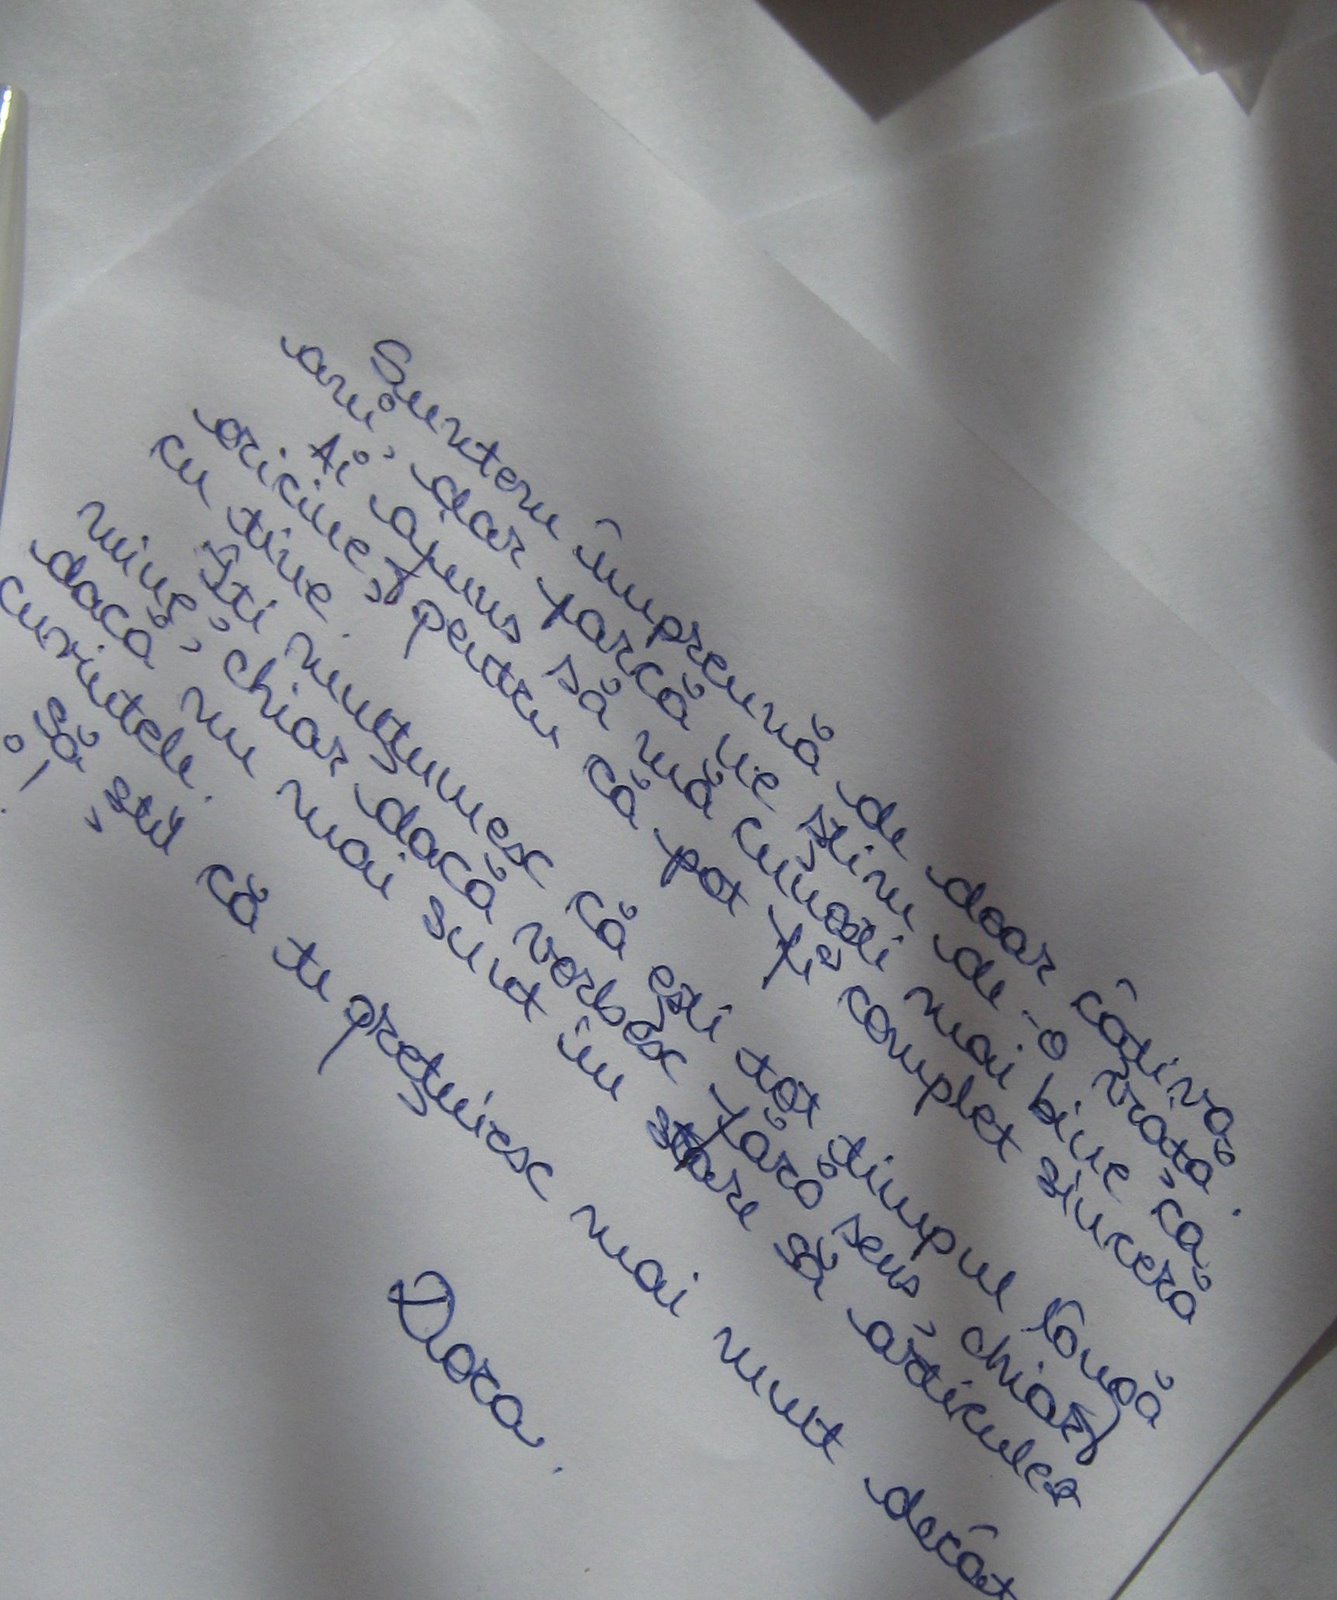 Suntem împreună de doar câtiva
ani, dar parcă ne știm de-o viată.
Ai ajuns să mă cunosti mai bine ca
oricine, pentru că pot fi complet sinceră
cu tine.
Îti multumesc că ești tot timpul lângă
mine, chiar dacă vorbesc fără sens, chiar
dacă nu mai sunt în stare să articulez
cuvintele.
Să știi că te prețuiesc mai mult decât
!
Dora.